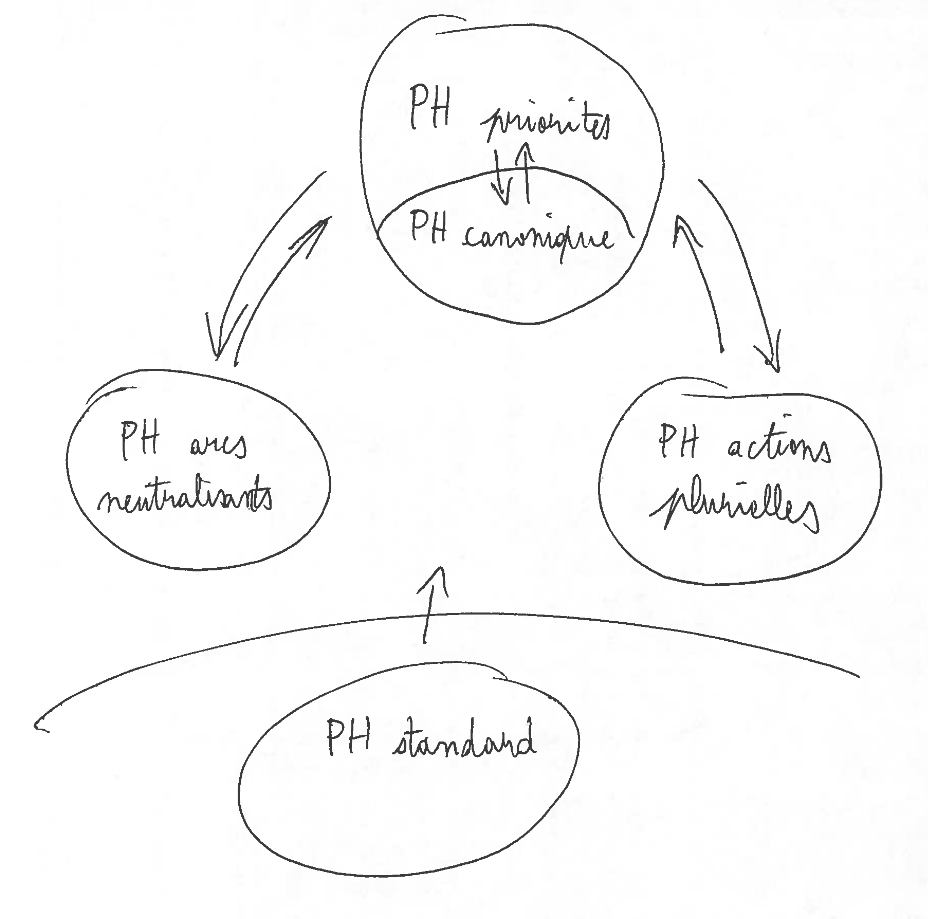 PH priorités
PH canonique
PH arcs
neutralisants
PH actions
plurielles
PH standard